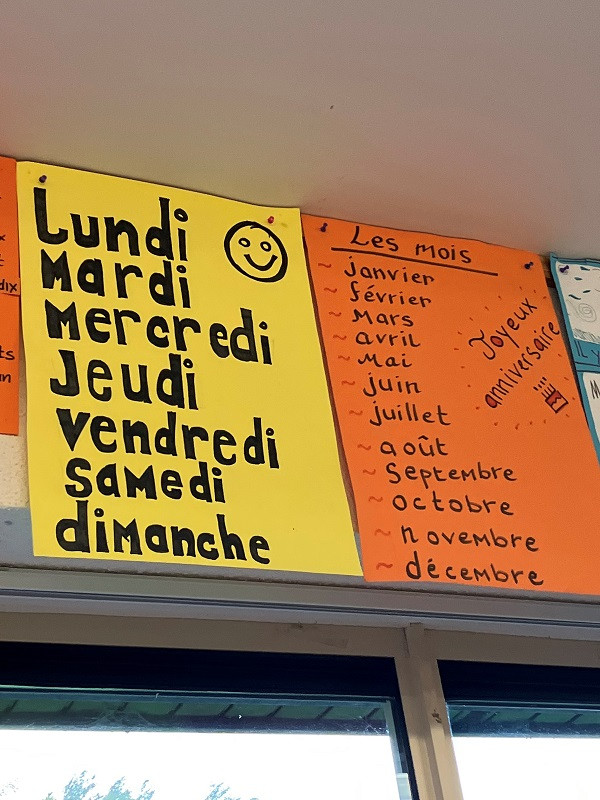 Lundi
Mardi
Mercredi
Jeudi
vendredi
samedi
dimanche
Les mois
~ janvier
~ février
~ Mars
~ avril
~ Mai
~ juin
~ juillet
~ août
~ Septembre
~ octobre
~ novembre
~ décembre
Joyeux
anniversaire